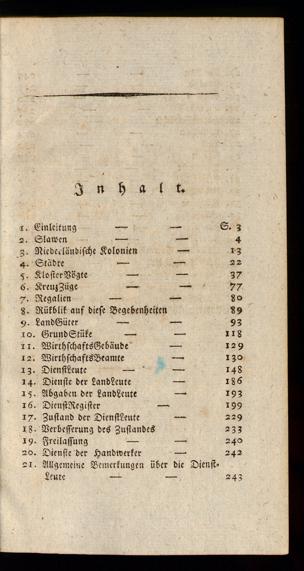 Inhalt.
1. Einleitung — — S. 3
2. Slawen — — 4
3. Niederländische Kolonien — 13
4. Städte — — 22
5. KlosterVögte — — 37
6. KreuzZüge — — 77
7. Regalien — — 80
8. Rükblik auf diese Begebenheiten 89
9. LandGüter — — 93
10. GrundStüke — — 118
11. WirthschaftsGebäude — 129
12. WirthschaftsBeamte — 130
13. DienstLeute — — 148
14. Dienste der LandLeute — 186
15. Abgaben der LandLeute — 193
16. DienstRegister — — 199
17. Zustand der DienstLeute — 229
18. Verbesserung des Zustandes 233
19. Freilassung — — 240
20. Dienste der Handwerker — 242
21. Allgemeine Bemerkungen über die Dienst-
Leute — — 243